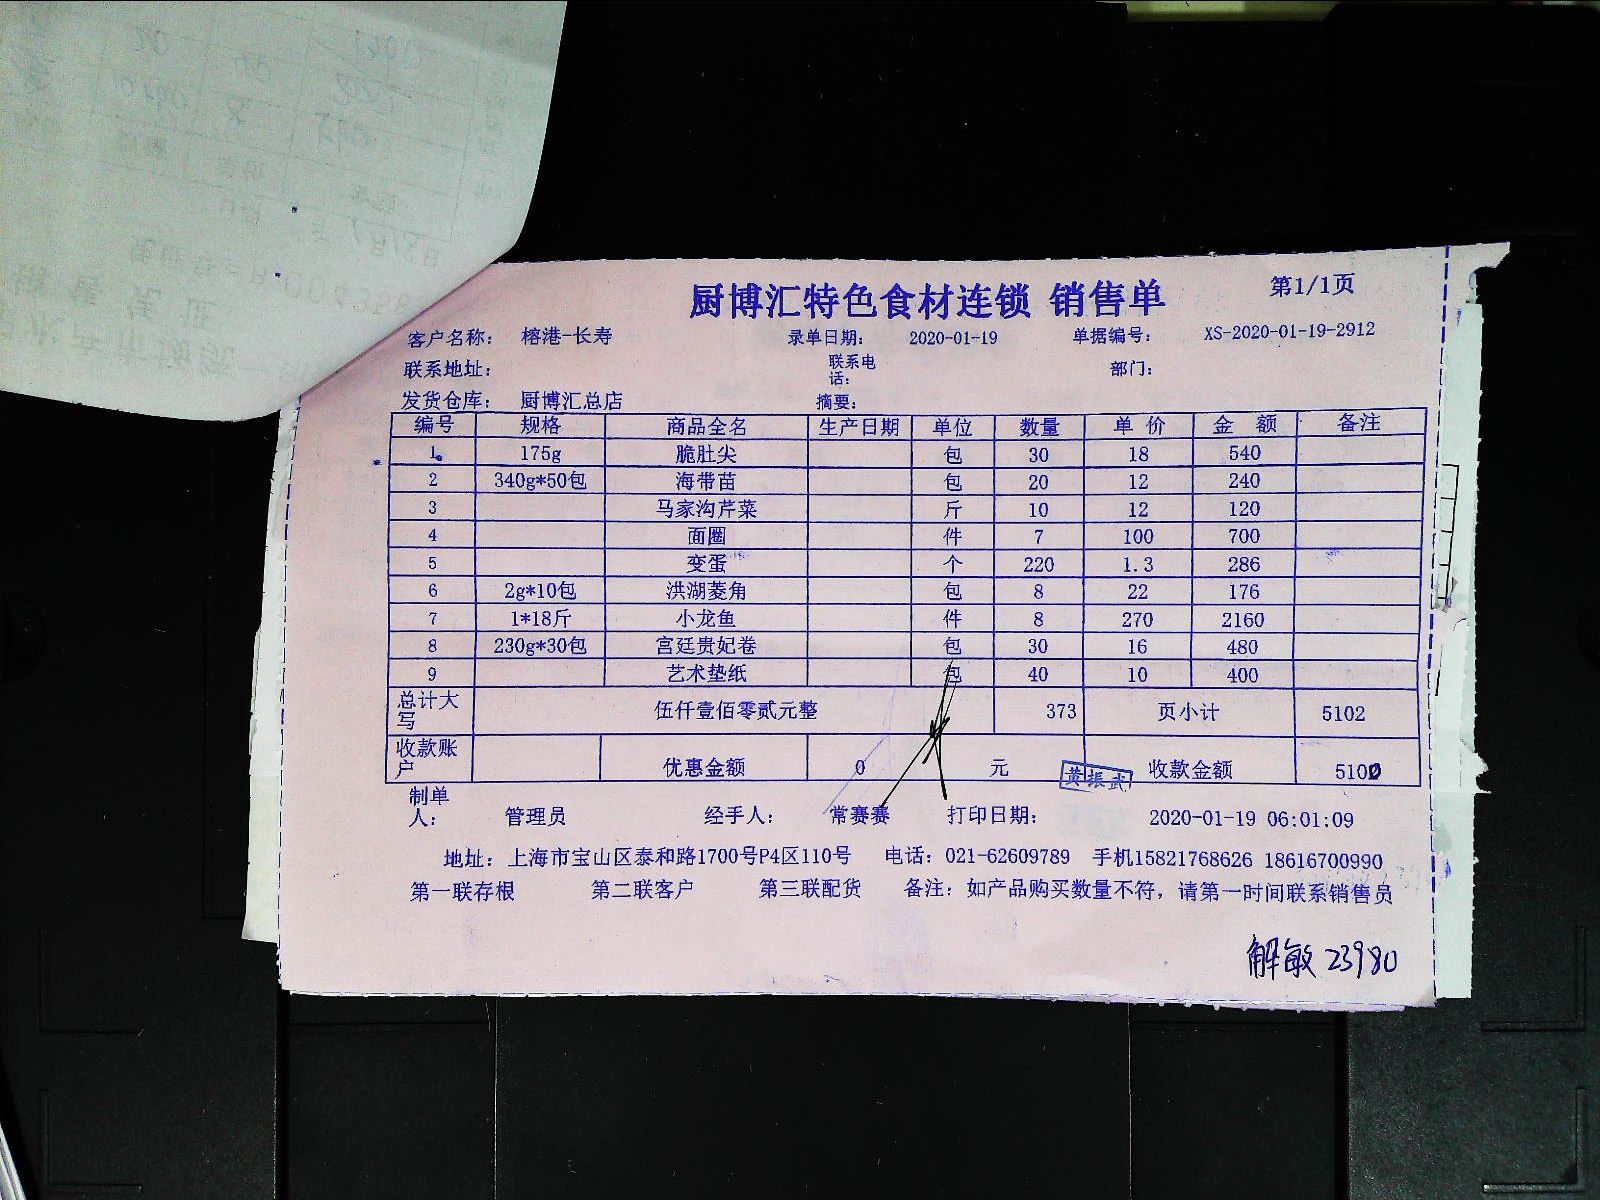 厨博汇特色食材连锁 销售单 第1/1页
客户名称： 榕港-长寿 录单日期： 2020-01-19 单据编号： XS-2020-01-19-2912
联系地址： 联系电话： 部门：
发货仓库： 厨博汇总店 摘要：
编号 规格 商品全名 生产日期 单位 数量 单价 金额 备注
1 175g 脆肚尖 包 30 18 540
2 340g*50包 海带苗 包 20 12 240
3 马家沟芹菜 斤 10 12 120
4 面圈 件 7 100 700
5 变蛋 个 220 1.3 286
6 2g*10包 洪湖菱角 包 8 22 176
7 1*18斤 小龙鱼 件 8 270 2160
8 230g*30包 宫廷贵妃卷 包 30 16 480
9 艺术垫纸 包 40 10 400
总计大写 伍仟壹佰零贰元整 373 页小计 5102
收款账户 优惠金额 0 元 黄振武 收款金额 5100
制单人： 管理员 经手人： 常赛赛 打印日期： 2020-01-19 06:01:09
地址：上海市宝山区泰和路1700号P4区110号 电话：021-62609789 手机15821768626 18616700990
第一联存根 第二联客户 第三联配货 备注：如产品购买数量不符，请第一时间联系销售员
解敏 23980